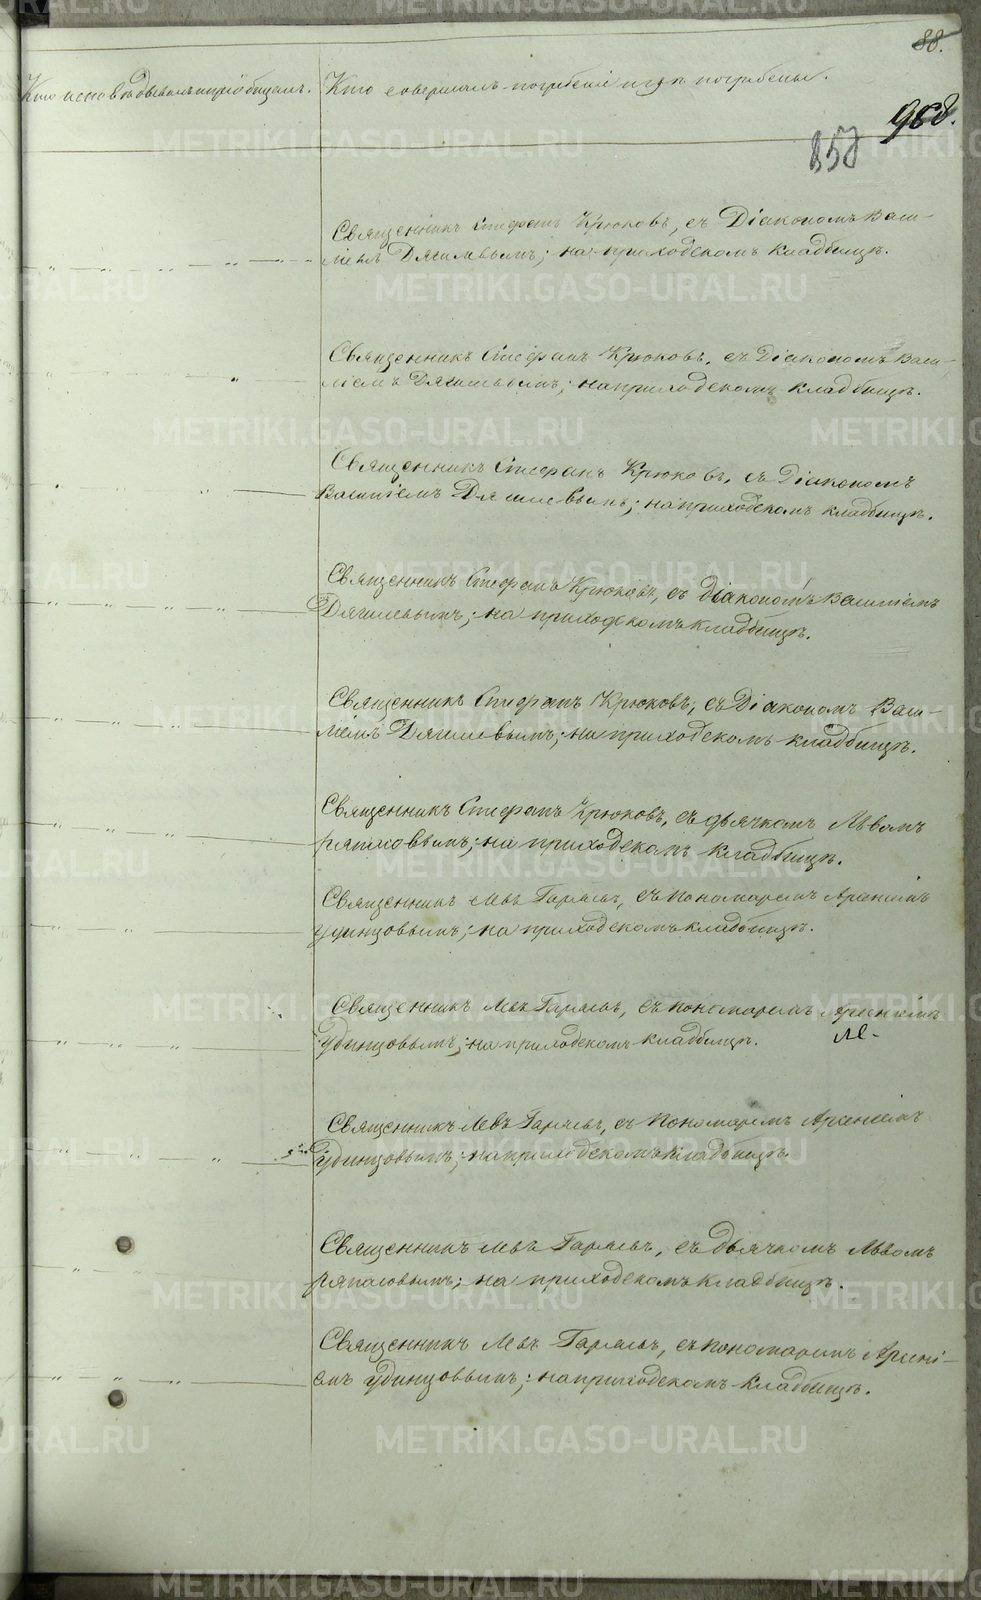 88.
Кто исповѣдывалъ и пріобщалъ. Кто совершалъ погребеніе и гдѣ погребены.
968.
858
Священникъ Стефанъ Крюковъ, съ Діакономъ Васи-
ліемъ Дягилевымъ; на приходскомъ кладбищѣ.
Священникъ Стефанъ Крюковъ, съ Діакономъ Васи-
ліемъ Дягилевымъ; на приходскомъ кладбищѣ.
Священникъ Стефанъ Крюковъ, съ Діакономъ
Василіемъ Дягилевымъ; на приходскомъ кладбищѣ.
Священникъ Стефанъ Крюковъ, съ діакономъ Василіемъ
Дягилевымъ; на приходскомъ кладбищѣ.
Священникъ Стефанъ Крюковъ, съ Діакономъ Васи-
ліемъ Дягилевымъ; на приходскомъ кладбищѣ.
Священникъ Стефанъ Крюковъ, съ дьячкомъ Львомъ
на приходскомъ кладбищѣ.
Священникъ Левъ Гаряевъ, съ пономаремъ Арсеніемъ
Удинцовымъ; на приходскомъ кладбищѣ.
Священникъ Левъ Гаряевъ, съ пономаремъ Арсеніемъ
Удинцовымъ; на приходскомъ кладбищѣ.
Священникъ Левъ Гаряевъ, съ Пономаремъ Арсеніемъ
Удинцовымъ; на приходскомъ кладбищѣ.
Священникъ Левъ Гаряевъ, съ дьячкомъ Львомъ
на приходскомъ кладбищѣ.
Священникъ Левъ Гаряевъ, съ пономаремъ Арсені-
емъ Удинцовымъ; на приходскомъ кладбищѣ.
METRIKI.GASO-URAL.RU